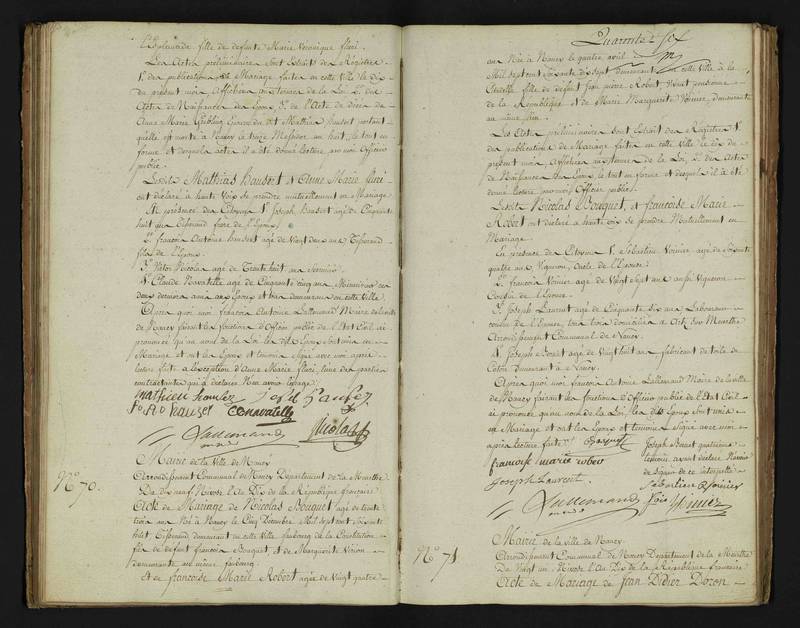 fille de defunte Marie Véronique fleri.
Les Actes préliminaires sont Extraits des Régistres
1° des publications de Mariage faites en cette Ville le Dix
du present mois, Affichées aux termes de la Loi 2° des
Actes de Naissances des Epoux 3° de l'Acte de décès de
Anne Marie Epouse du dit Mathias hausert portant
quelle est morte à Nancy le treize Messidor an huit, le tout en
forme et desquels actes il a été donné lecture par moi Officier
public.
Lesdits Mathias hausert et Anne Marie fleri
ont déclaré à haute Voix se prendre mutuellement en Mariage
En présence des Citoyens 1° Joseph hausert agé de Cinquante
huit ans Tisserand frere de l'Epoux
2° francois Antoine hausert agé de Vingt deux ans Tisserand
fils de l'Epoux.
3° Victor Nicolas agé de Trente huit ans
4° Claude Navatelle agé de Cinquante cinq ans
deux derniers amis des Epoux et tous demeurans en cette Ville.
Après quoi moi francois Antoine Lallemand Maire de la ville
de Nancy faisant les fonctions d'Officier public de l'Etat Civil ai
prononcé qu'au nom de la Loi les dits Epoux sont unis en
Mariage et ont les Epoux et temoins signé avec moi après
lecture faite à l'exception d'Anne Marie fleri, l'une des parties
contractantes qui a déclaré Non avoir l'usage.
Lallemand Nicolas
N° 70.
Mairie de la Ville de Nancy
Arrondissement Communal de Nancy Département de la Meurthe
Du dix neuf Nivose l'An Dix de la République francaise
Acte de Mariage de Nicolas Bouquet agé de trente
trois ans Né à Nancy le Cinq Decembre Mil sept cent soixante
huit, Tisserand demeurant en cette Ville faubourg de la Constitution
fils de defunt francois Bouquet et de Marguerite
demeurante au même faubourg
Et de francoise Marie Robert agée de Vingt quatre
Quarante Six
ans Née à Nancy le quatre avril
Mil sept cent soixante dix sept demeurant en cette Ville à la
Citadelle fille de defunt Jean pierre Robert Vivant pensionné
de la République et de Marie Marguerite Voinier, demeurante
au même lieu.
Les Actes préliminaires sont Extraits des Régistres 1°
des publications de Mariage faites en cette Ville le dix du
présent mois, Affichées aux termes de la Loi, 2° des Actes
de Naissances des Epoux le tout en forme et desquels il a été
donné lecture par moi Officier public.
Lesdits Nicolas Bouquet, et francoise Marie
Robert ont déclaré à haute voix se prendre Mutuellement en
Mariage
En présence des Citoyens 1° Sébastien Voinier agé de soixante
quatre ans Vigneron, Oncle de l'Epouse.
2° francois Voinier agé de Vingt sept ans aussi Vigneron
Cousin de l'Epouse.
3° Joseph Laurent agé de Cinquante six ans Laboureur
cousin de l'Epouse tous trois domiciliés à Art sur Meurthe
Arrondissement Communal de Nancy.
4° Joseph Benet agé de Vingt huit ans fabricant de toile de
Coton Demeurant à Nancy.
Après quoi moi, francois Antoine Lallemand Maire de la ville
de Nancy faisant les fonctions d'Officier public de l'Etat Civil
ai prononcé qu'au nom de la Loi, les dits Epoux sont unis
en Mariage et ont les Epoux et temoins signé avec moi
après lecture faite.
francoise marie rober
Joseph Laurent
Joseph Benet quatrième
temoin, ayant déclaré
de signer de ce interpellé
Sebastien Voinier
Lallemand
N° 71
Mairie de la ville de Nancy
Arrondissement Communal de Nancy Département de la Meurthe
Du Vingt un Nivose l'An Dix de la République francaise
Acte de Mariage de Jean Didier Doron